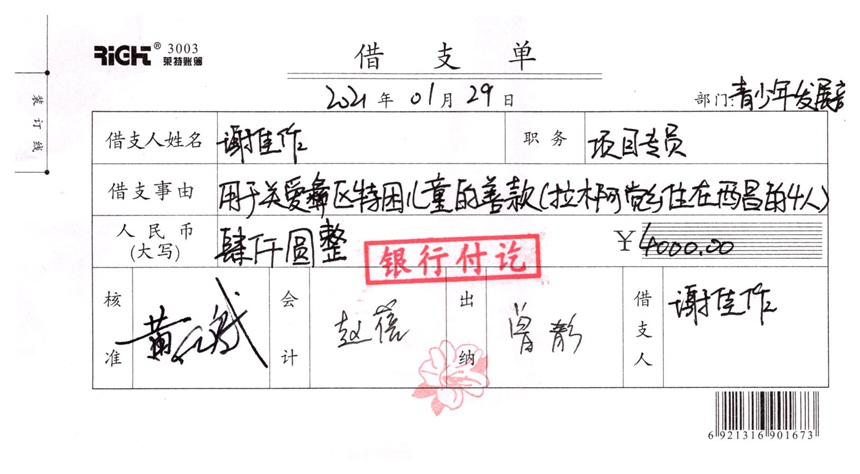 RiGHT® 3003
莱特账簿
借支单
2021年01月29日
部门:青少年发展部
装订线
借支人姓名 谢佳作 职务 项目专员
借支事由 用于关爱彝区特困儿童的善款(拉木阿 住在西昌的4人)
人民币(大写) 肆仟圆整 ¥4000.00
银行付讫
核准 黄 会计 赵蓓 出纳 曾静 借支人 谢佳作
6 921316 901673